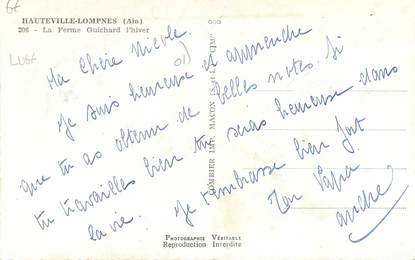 HAUTEVILLE-LOMPNES (Ain)
206 - La Ferme Guichard l'hiver
Ma Chère Nicole.
Je suis heureuse d'apprendre
que tu as obtenu de belles notes. Si
tu travailles bien tu seras heureuse dans
la vie. Je t'embrasse bien fort
Ton Papa
andré
COMBIER IMP. MACON (S.-et-L.) "CIM"
PHOTOGRAPHIE VÉRITABLE
Reproduction Interdite